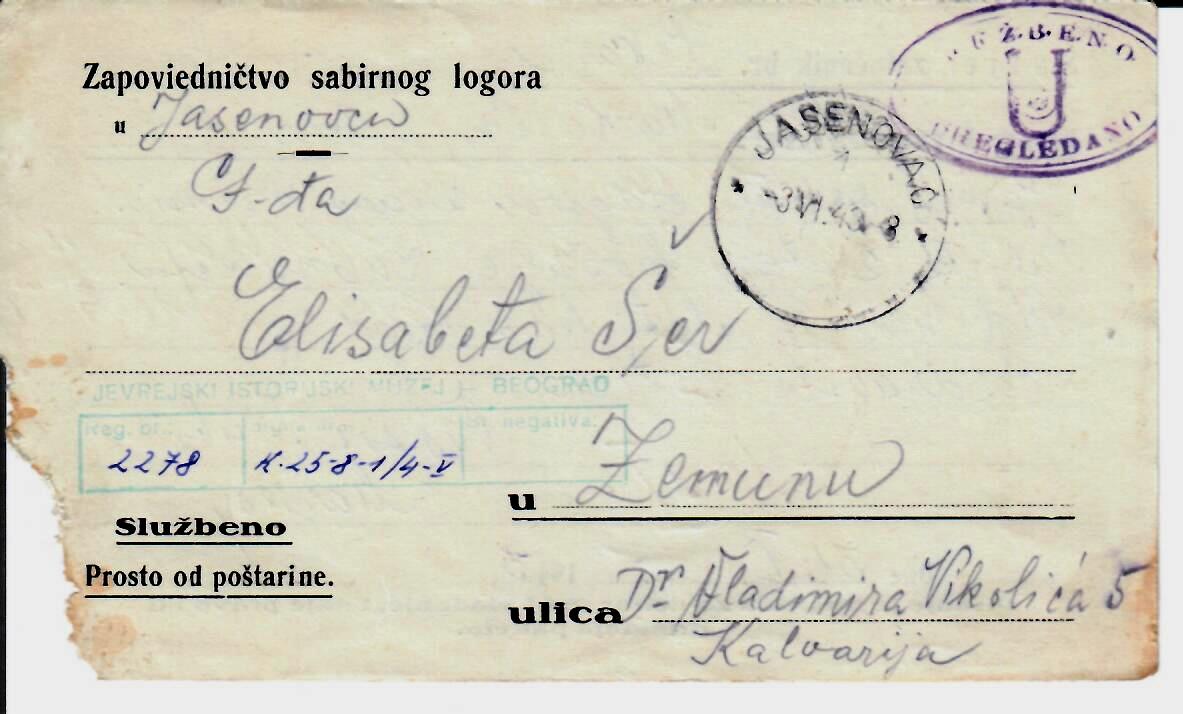 Zapovjedničtvo sabirnog logora
u Jasenovcu
G-đa
Elisabeta Šer
u Zemunu
ulica Dr Vladimira Nikolića 5
Kalvarija
Službeno
Prosto od poštarine.
JASENOVAC
PREGLEDANO
U
JEVREJSKI ISTORIJSKI MUZEJ - BEOGRAD
Reg. br.: negativa:
2278 K.25-8-1/4-V